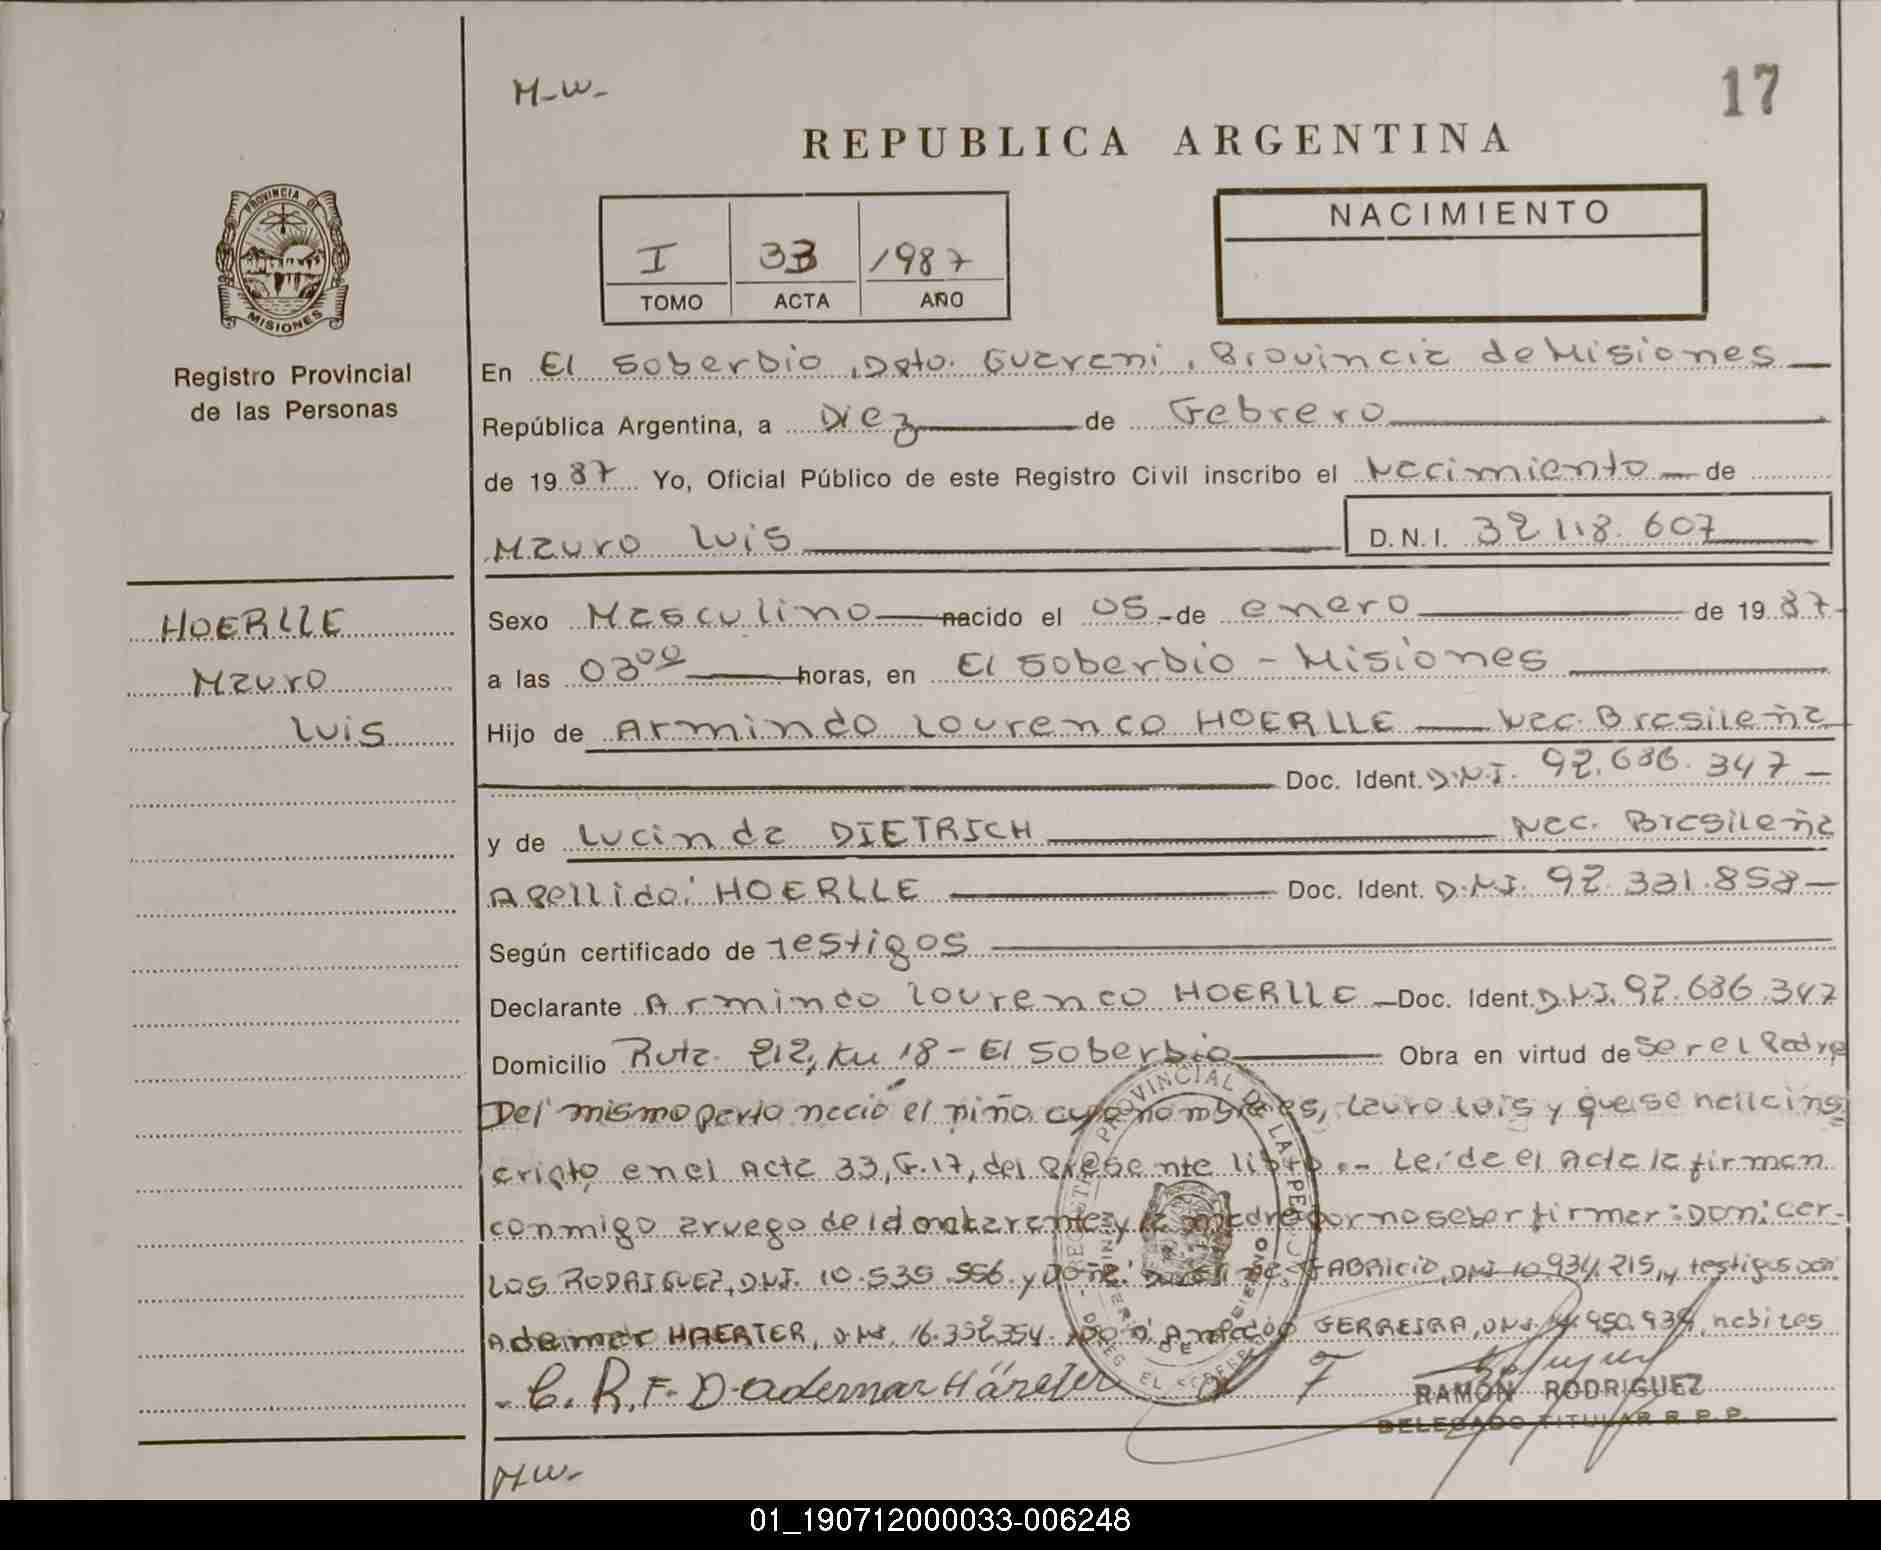 M-W-
17
REPUBLICA ARGENTINA
PROVINCIA DE
MISIONES
Registro Provincial
de las Personas
I 33 1987
TOMO ACTA AÑO
NACIMIENTO
En El Soberbio, Dpto. Guarani, Provincia de Misiones
República Argentina, a Diez de Febrero
de 1987 Yo, Oficial Público de este Registro Civil inscribo el Nacimiento de
Mauro Luis D.N.I. 32.118.607
HOERLLE
Mauro
Luis
Sexo Masculino nacido el 05 - de enero de 1987-
a las 03⁰⁰ horas, en El Soberbio - Misiones
Hijo de Armindo Lourenco HOERLLE Nac. Brasileña
Doc. Ident. D.N.I. 92.686.347 -
y de Lucinda DIETRICH Nac. Brasileña
Apellido: HOERLLE Doc. Ident. D.N.I. 92.331.858-
Según certificado de Testigos
Declarante Armindo Lourenco HOERLLE - Doc. Ident. D.N.I. 92.686.347
Domicilio Ruta 212, Km 18 - El Soberbio Obra en virtud de Ser el Padre
Del mismo parto nació el niño cuyo nombre es, Lauro Luis y que se halla ins
cripto en el Acta 33, F.17, del presente libro.- Leída el Acta la firman
conmigo a ruego del declarante y la madre por no saber firmar: Don: Car-
los RODRIGUEZ, D.N.I. 10.535.556 y Doña: FABRICIO, DNI 10.934.215, y testigos Don:
Ademar HAERTER, DNI. 16.392.354 FERREIRA, DNI. 950.939, habiles
- C. R. F- D- Ademar Härter F
REGISTRO PROVINCIAL DE LAS PERSONAS
RAMÓN RODRIGUEZ
DELEGADO TITULAR R. P. P.
M.W-
01_190712000033-006248